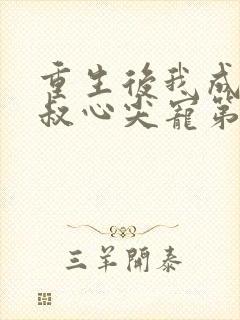 重生後我成
叔心尖寵第
三羊開泰